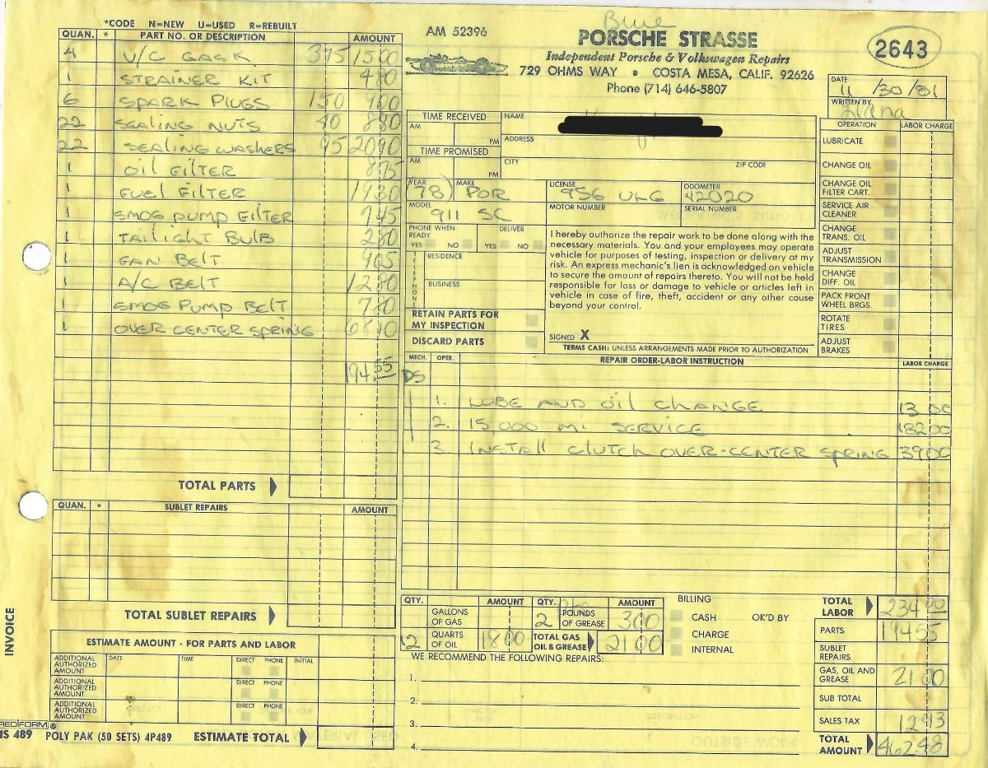 *CODE N=NEW U=USED R=REBUILT
QUAN. * PART NO. OR DESCRIPTION AMOUNT
4 V/C GASK 375 1500
1 STRAINER KIT 480
6 SPARK PLUGS 150 900
22 SEALING NUTS 40 880
22 SEALING WASHERS 95 2090
1 OIL FILTER 875
1 FUEL FILTER 1930
1 SMOG PUMP FILTER 945
1 TAILIGHT BULB 280
1 FAN BELT 905
1 A/C BELT 1280
1 SMOG PUMP BELT 780
1 OVER CENTER SPRING 6890
194 55
TOTAL PARTS
QUAN. * SUBLET REPAIRS AMOUNT
TOTAL SUBLET REPAIRS
ESTIMATE AMOUNT - FOR PARTS AND LABOR
ADDITIONAL AUTHORIZED AMOUNT DATE TIME DIRECT PHONE INITIAL
ADDITIONAL AUTHORIZED AMOUNT DIRECT PHONE
ADDITIONAL AUTHORIZED AMOUNT DIRECT PHONE
INVOICE
REDIFORM®
IS 489 POLY PAK (50 SETS) 4P489 ESTIMATE TOTAL
AM 52396
Blue
PORSCHE STRASSE
Independent Porsche & Volkswagen Repairs
729 OHMS WAY • COSTA MESA, CALIF. 92626
Phone (714) 646-5807
2643
DATE 11/30/81
WRITTEN BY
TIME RECEIVED
AM PM
TIME PROMISED
AM PM
NAME
ADDRESS
CITY ZIP CODE
YEAR 78 MAKE POR LICENSE 956 ULG ODOMETER 42020
MODEL 911 SC MOTOR NUMBER SERIAL NUMBER
PHONE WHEN READY YES NO
DELIVER YES NO
TELEPHONE
RESIDENCE
BUSINESS
RETAIN PARTS FOR MY INSPECTION
DISCARD PARTS
I hereby authorize the repair work to be done along with the
necessary materials. You and your employees may operate
vehicle for purposes of testing, inspection or delivery at my
risk. An express mechanic's lien is acknowledged on vehicle
to secure the amount of repairs thereto. You will not be held
responsible for loss or damage to vehicle or articles left in
vehicle in case of fire, theft, accident or any other cause
beyond your control.
SIGNED X
TERMS CASH: UNLESS ARRANGEMENTS MADE PRIOR TO AUTHORIZATION
OPERATION LABOR CHARGE
LUBRICATE
CHANGE OIL
CHANGE OIL FILTER CART.
SERVICE AIR CLEANER
CHANGE TRANS. OIL
ADJUST TRANSMISSION
CHANGE DIFF. OIL
PACK FRONT WHEEL BRGS.
ROTATE TIRES
ADJUST BRAKES
MECH. OPER. REPAIR ORDER-LABOR INSTRUCTION LABOR CHARGE
DS
1. LUBE AND OIL CHANGE 13 00
2. 15,000 MI SERVICE 182 00
3. INSTALL CLUTCH OVER-CENTER SPRING 39 00
QTY. AMOUNT QTY. AMOUNT
GALLONS OF GAS 2 POUNDS OF GREASE 300
12 QUARTS OF OIL 1800 TOTAL GAS OIL & GREASE 2100
BILLING
CASH OK'D BY
CHARGE
INTERNAL
WE RECOMMEND THE FOLLOWING REPAIRS:
1.
2.
3.
4.
TOTAL LABOR 234 00
PARTS 194 55
SUBLET REPAIRS
GAS, OIL AND GREASE 21 00
SUB TOTAL
SALES TAX 12 93
TOTAL AMOUNT 462.48